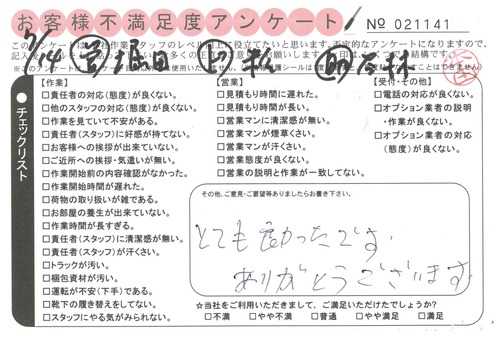 お客様不満足度アンケート
No 021141
チェックリスト
【作業】
□責任者の対応(態度)が良くない。
□他のスタッフの対応(態度)が良くない。
□作業を見ていて不安がある。
□責任者(スタッフ)に好感が持てない。
□お客様への挨拶が出来ていない。
□ご近所への挨拶・気遣いが無い。
□作業開始前の内容確認がなかった。
□作業開始時間が遅れた。
□荷物の取り扱いが雑である。
□お部屋の養生が出来ていない。
□作業時間が長すぎる。
□責任者(スタッフ)に清潔感が無い。
□責任者(スタッフ)が汗くさい。
□トラックが汚い。
□梱包資材が汚い。
□運転が不安(下手)である。
□靴下の履き替えをしてない。
□スタッフにやる気がみられない。
【営業】
□見積もり時間に遅れた。
□見積もり時間が長い。
□営業マンに清潔感が無い。
□営業マンが煙草くさい。
□営業マンが汗くさい。
□営業態度が良くない。
□営業の説明と作業が一致してない。
【受付・その他】
□電話の対応が良くない。
□オプション業者の説明
・作業が良くない。
□オプション業者の対応
(態度)が良くない。
その他、ご意見・ご要望等ありましたらお書き下さい。
とても良かったです。
ありがとうございます
☆当社をご利用いただきまして、ご満足いただけたでしょうか?
□不満 □やや不満 □普通 □やや満足 □満足